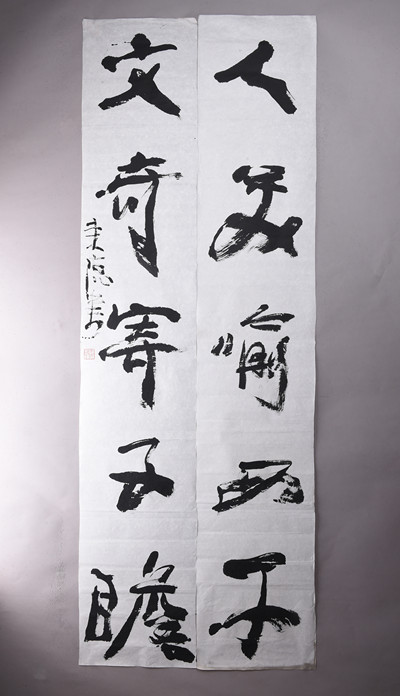 人美喻西子
文奇寄子瞻